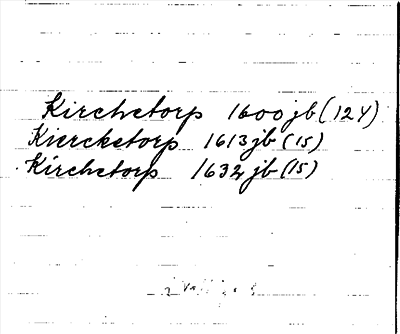 Kirchetorp 1600 jb (124)
Kiercketorp 1613 jb (15)
Kirchetorp 1632 jb (15)